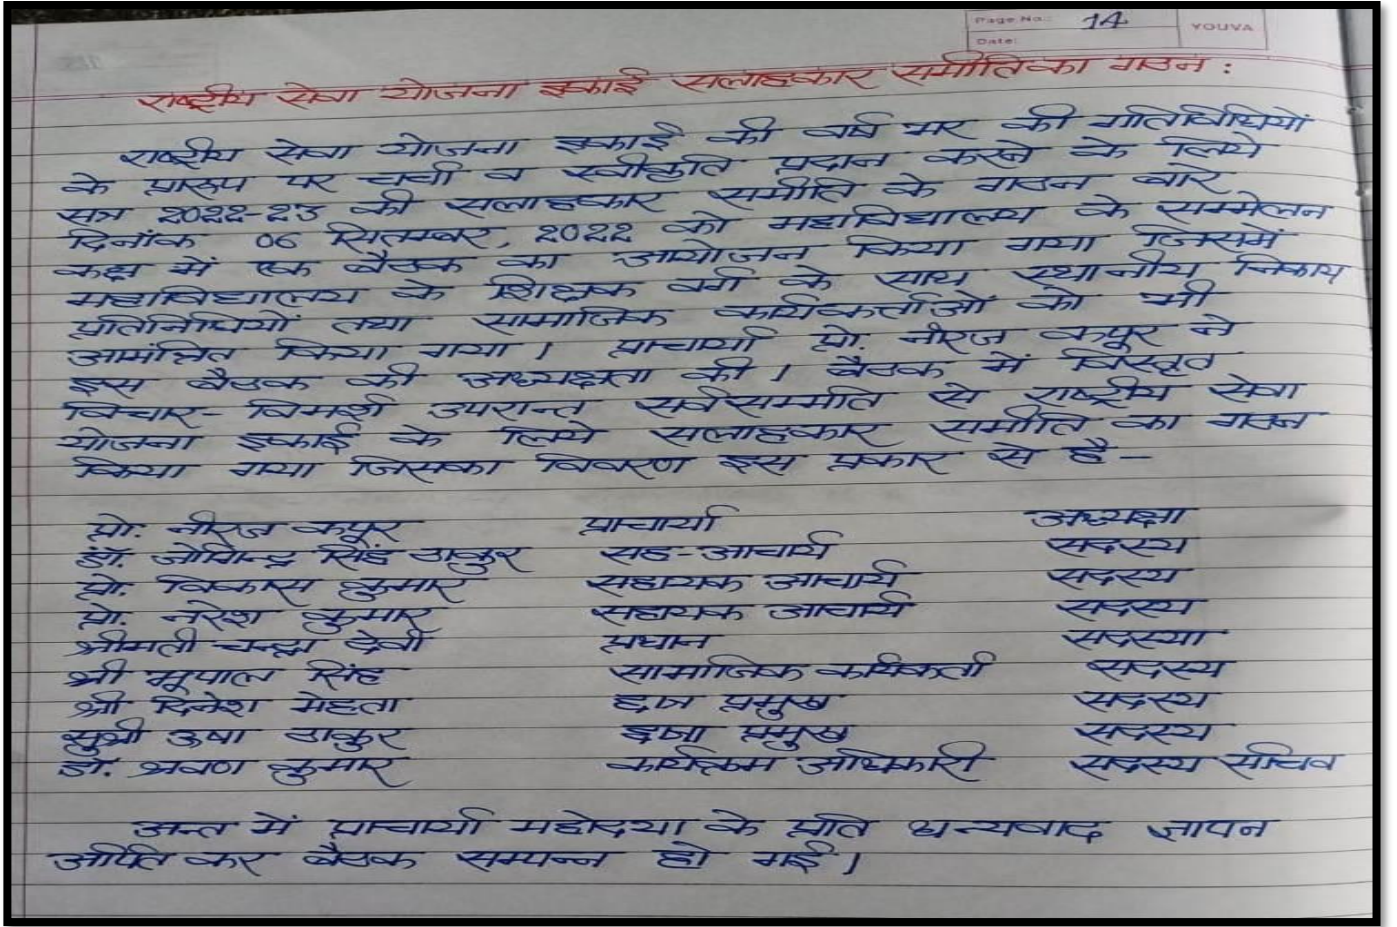 Page No.: 14
Date:
YOUVA
राष्ट्रीय सेवा योजना इकाई सलाहकार समीति का गठन :
राष्ट्रीय सेवा योजना इकाई की वर्ष भर की गतिविधियों
के प्रारूप पर चर्चा व स्वीकृति प्रदान करने के लिये
सत्र 2022-23 की सलाहकार समीति के गठन बारे
दिनांक 06 सितम्बर, 2022 को महाविद्यालय के सम्मेलन
कक्ष में एक बैठक का आयोजन किया गया जिसमें
महाविद्यालय के शिक्षक वर्ग के साथ स्थानीय निकाय
प्रतिनिधियों तथा सामाजिक कार्यकर्ताओं को भी
आमंत्रित किया गया । प्राचार्या प्रो. नीरज कपूर ने
इस बैठक की अध्यक्षता की । बैठक में विस्तृत
विचार-विमर्श उपरान्त सर्वसम्मति से राष्ट्रीय सेवा
योजना इकाई के लिये सलाहकार समीति का गठन
किया गया जिसका विवरण इस प्रकार से है -
प्रो. नीरज कपूर प्राचार्या अध्यक्षा
डॉ. जोगिन्द्र सिंह ठाकुर सह-आचार्य सदस्य
प्रो. विकास कुमार सहायक आचार्य सदस्य
प्रो. नरेश कुमार सहायक आचार्य सदस्य
श्रीमती चन्द्रा देवी प्रधान सदस्या
श्री भूपाल सिंह सामाजिक कार्यकर्ता सदस्य
श्री दिनेश मेहता छात्र प्रमुख सदस्य
सुश्री ऊषा ठाकुर छात्रा प्रमुख सदस्य
डॉ. श्रवण कुमार कार्यक्रम अधिकारी सदस्य सचिव
अन्त में प्राचार्या महोदया के प्रति धन्यवाद ज्ञापन
अर्पित कर बैठक सम्पन्न हो गई ।